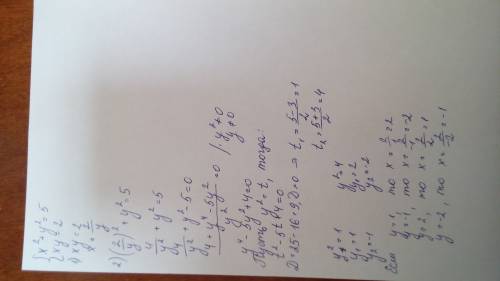 {x²+y²=5
{xy=2
1) xy=2
x=2/y
2) (2/y)²+y²=5
4/y²+y²=5
4/y²+y²-5=0
(4+y⁴-5y²)/y²=0 |·y²≠0
y≠0
y⁴-5y²+4=0
Пусть y²=t, тогда:
t²-5t+4=0
D=25-16=9, D>0 ⇒ t₁=(5-3)/2=1
t₂=(5+3)/2=4
y²=1 y²=4
y₁=1 y₁=2
y₂=-1 y₂=-2
Если y=1, то x=2/1=2
y=-1, то x=2/-1=-2
y=2, то x=2/2=1
y=-2, то x=2/-2=-1